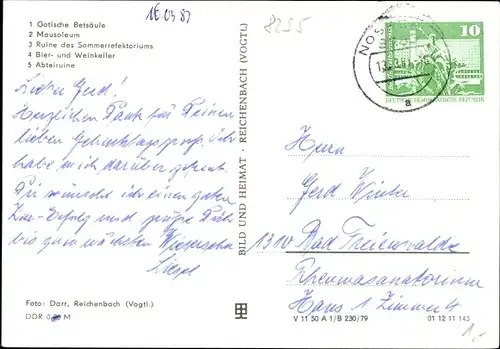 1 Gotische Betsäule
2 Mausoleum
3 Ruine des Sommerrefektoriums
4 Bier- und Weinkeller
5 Abteiruine
16.03.81
8255
NOS
13.3.81
a
10
DEUTSCHE DEMOKRATISCHE REPUBLIK
Lieber Gerd!
Herzlichen Dank für Deinen
lieben Geburtstagsgruß. Ich
habe mich darüber gefreut.
Dir wünscht ich einen guten
Kur-Erfolg und grüße Dich
bis zum nächsten Wiedersehen
BILD UND HEIMAT · REICHENBACH (VOGTL)
Herrn
Gerd Winter
1310 Bad Freienwalde
Rheumasanatorium
Haus 1 Zimmer 4
Foto: Darr, Reichenbach (Vogtl.)
DDR M
V 11 50 A 1/B 230/79 01 12 11 143
1,-